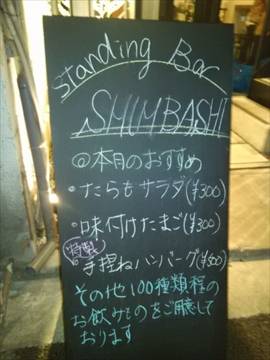 Standing Bar
SHIMBASHI
◎本日のおすすめ
・たらもサラダ(¥300)
・味付けたまご(¥300)
特製
・手捏ねハンバーグ(¥800)
その他100種類程の
お飲みものをご用意して
おります